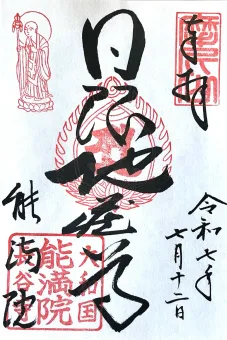 奉拝
日限地蔵尊
令和七年
七月十二日
能満院
大和国
能満院
長谷寺